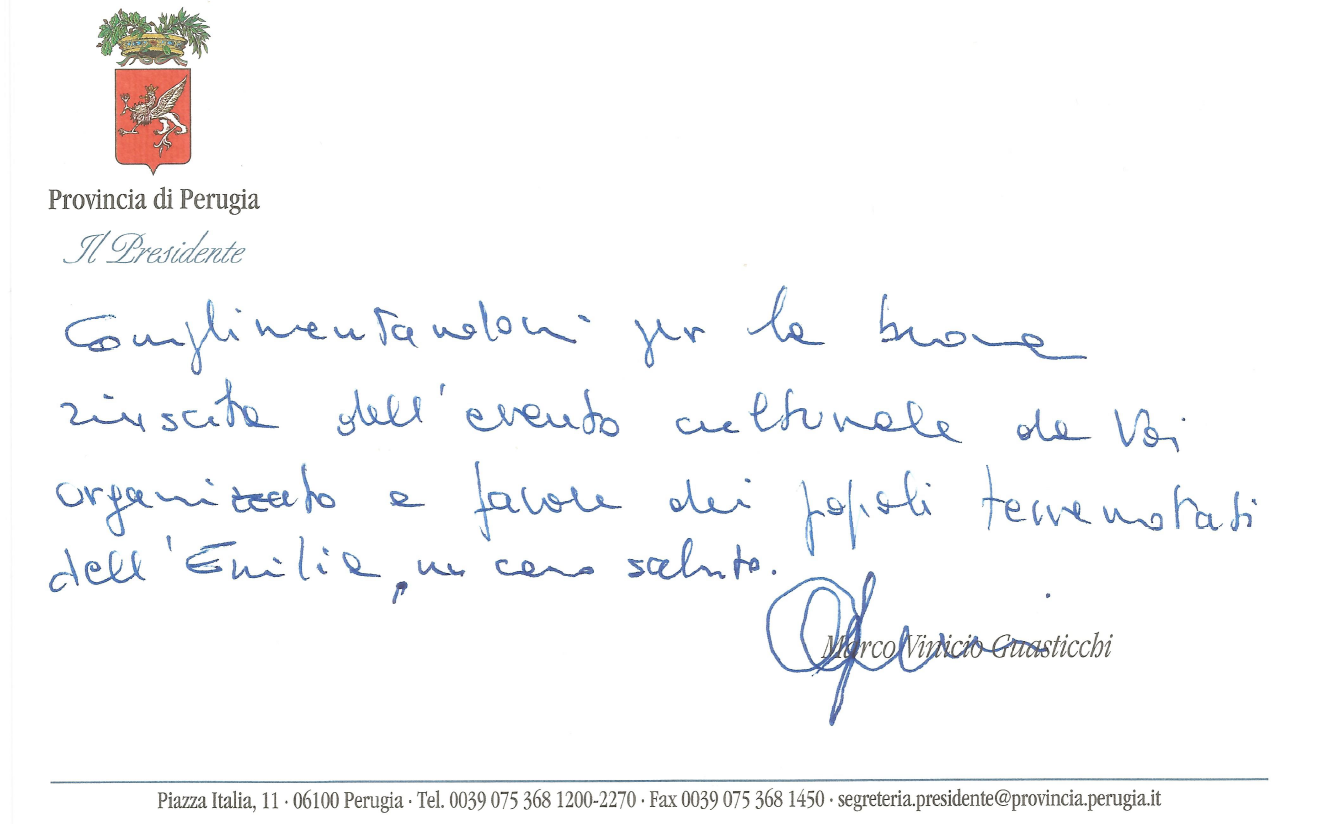 Provincia di Perugia
Il Presidente
Complimentandomi per la buona
riuscita dell'evento culturale da Voi
organizzato a favore dei popoli terremotati
dell'Emilia, un caro saluto.
Marco Vinicio Guasticchi
Piazza Italia, 11 · 06100 Perugia · Tel. 0039 075 368 1200-2270 · Fax 0039 075 368 1450 · segreteria.presidente@provincia.perugia.it